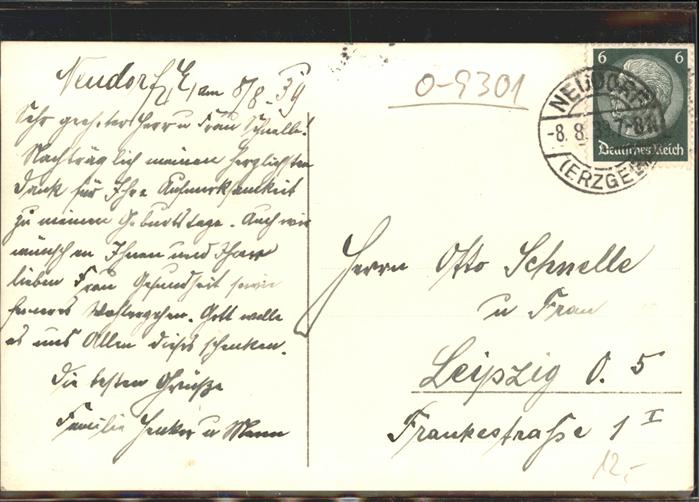 Neudorf/E, am 8/8. 39
Sehr geehrter Herr u Frau Schnelle!
Nachträglich meinen herzlichsten
Dank für Ihre Aufmerksamkeit
zu meinem Geburtstage. Auch wir
wünschen Ihnen und Ihrer
lieben Frau Gesundheit sowie
ferneres Wohlergehen. Gott wolle
es uns Allen dieses schenken.
Die besten Grüße
Familie u Mann
0-9301
6 6
Deutsches Reich
NEUDORF
-8. 8.
(ERZGEB
Herrn Otto Schnelle
u Frau
Leipzig O. 5
Frankestraße 1 I
12,-